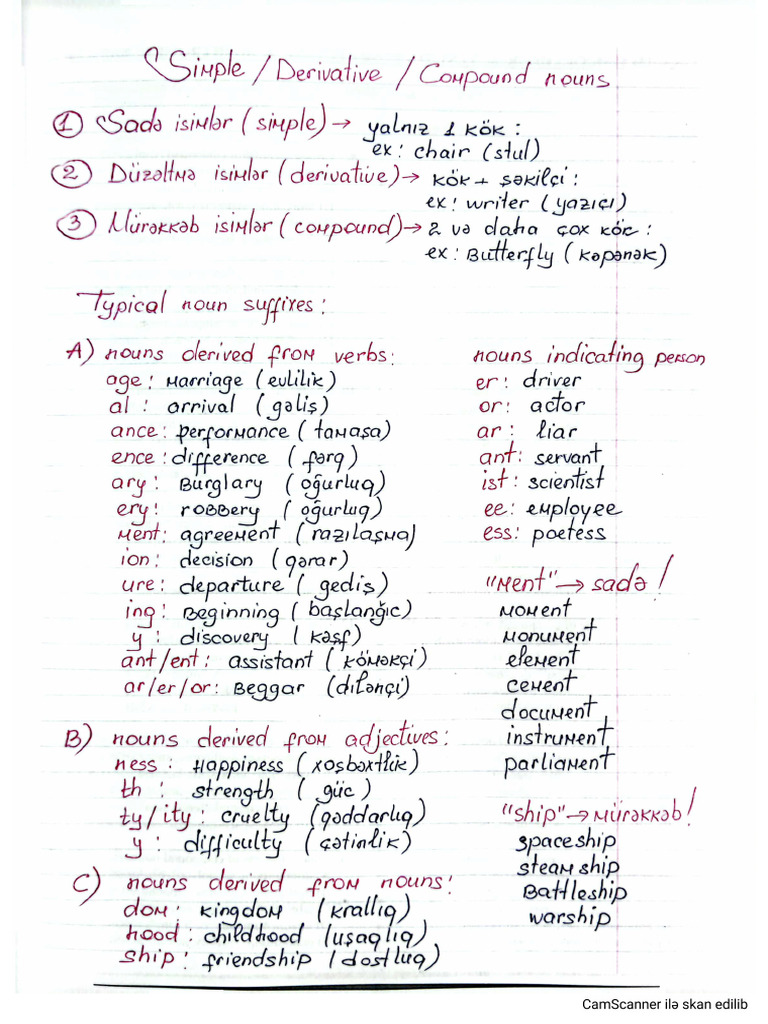 Simple / Derivative / Compound nouns
1 Sadə isimlər (simple) → yalnız 1 kök :
ex : chair (stul)
2 Düzəltmə isimlər (derivative) → kök + şəkilçi :
ex : writer (yazıçı)
3 Mürəkkəb isimlər (compound) → 2 və daha çox kök :
ex : Butterfly (kəpənək)
Typical noun suffixes :
A) nouns derived from verbs :
age : marriage (evlilik)
al : arrival (gəliş)
ance : performance (tamaşa)
ence : difference (fərq)
ary : Burglary (oğurluq)
ery : robbery (oğurluq)
ment : agreement (razılaşma)
ion : decision (qərar)
ure : departure (gediş)
ing : Beginning (başlanğıc)
y : discovery (kəşf)
ant/ent : assistant (köməkçi)
ar/er/or : Beggar (dilənçi)
B) nouns derived from adjectives :
ness : Happiness (xoşbəxtlik)
th : strength (güc)
ty/ity : cruelty (qəddarlıq)
y : difficulty (çətinlik)
C) nouns derived from nouns :
dom : kingdom (krallıq)
hood : childhood (uşaqlıq)
ship : friendship (dostluq)
nouns indicating person
er : driver
or : actor
ar : liar
ant : servant
ist : scientist
ee : employee
ess : poetess
"ment" → sadə !
moment
monument
element
cement
document
instrument
parliament
"ship" → mürəkkəb !
spaceship
steam ship
Battleship
warship
CamScanner ilə skan edilib